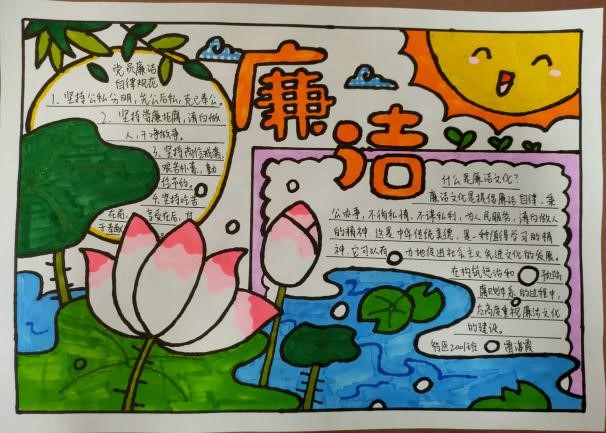 廉洁
党员廉洁
自律规范
1、坚持公私分明，先公后私，克己奉公。
2、坚持崇廉拒腐，清白做
人，干净做事。
3、坚持尚俭戒奢，
艰苦朴素，勤
俭节约。
4、坚持吃苦
在前，享受在后，甘
于奉献
什么是廉洁文化？
廉洁文化是提倡廉洁自律，秉
公办事，不徇私情，不谋私利，为人民服务，清白做人
的精神。这是中华传统美德，是一种值得学习的精
神。它可以有 力地促进社会主义先进文化的发展。
在构筑惩治和 预防
腐败体系的过程中，
应高度重视廉洁文化
的建设。
2001班